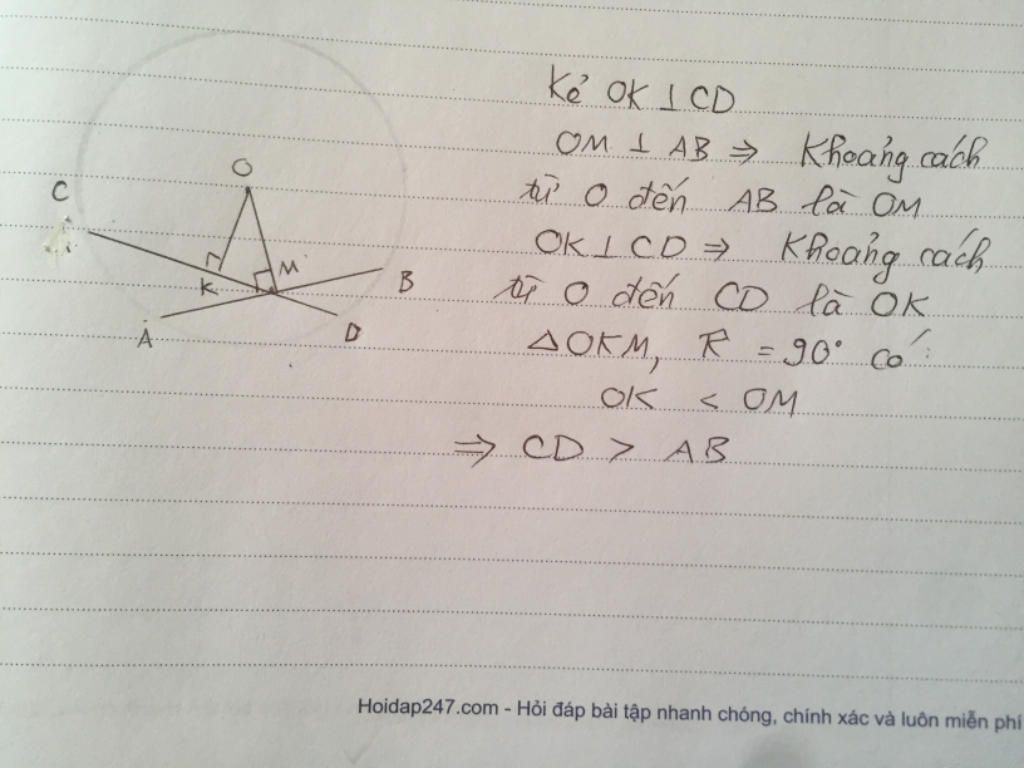 C
O
K
M
B
A
D
Kẻ OK ⊥ CD
OM ⊥ AB ⇒ Khoảng cách
từ O đến AB là OM
OK ⊥ CD ⇒ Khoảng cách
từ O đến CD là OK
△OKM, K = 90° có:
OK < OM
⇒ CD > AB
Hoidap247.com - Hỏi đáp bài tập nhanh chóng, chính xác và luôn miễn phí